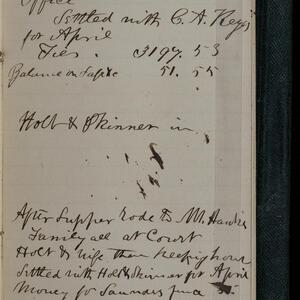 Office
Settled with C. A. Keyes
for April
Ties. 3197.53
Balance on 51.55
Holt & Skinner in
After Supper rode to M. Hawks
Family all at Court
Holt & wife then Keeping house
Settled with Holt & Skinner for April
Money for Saunders